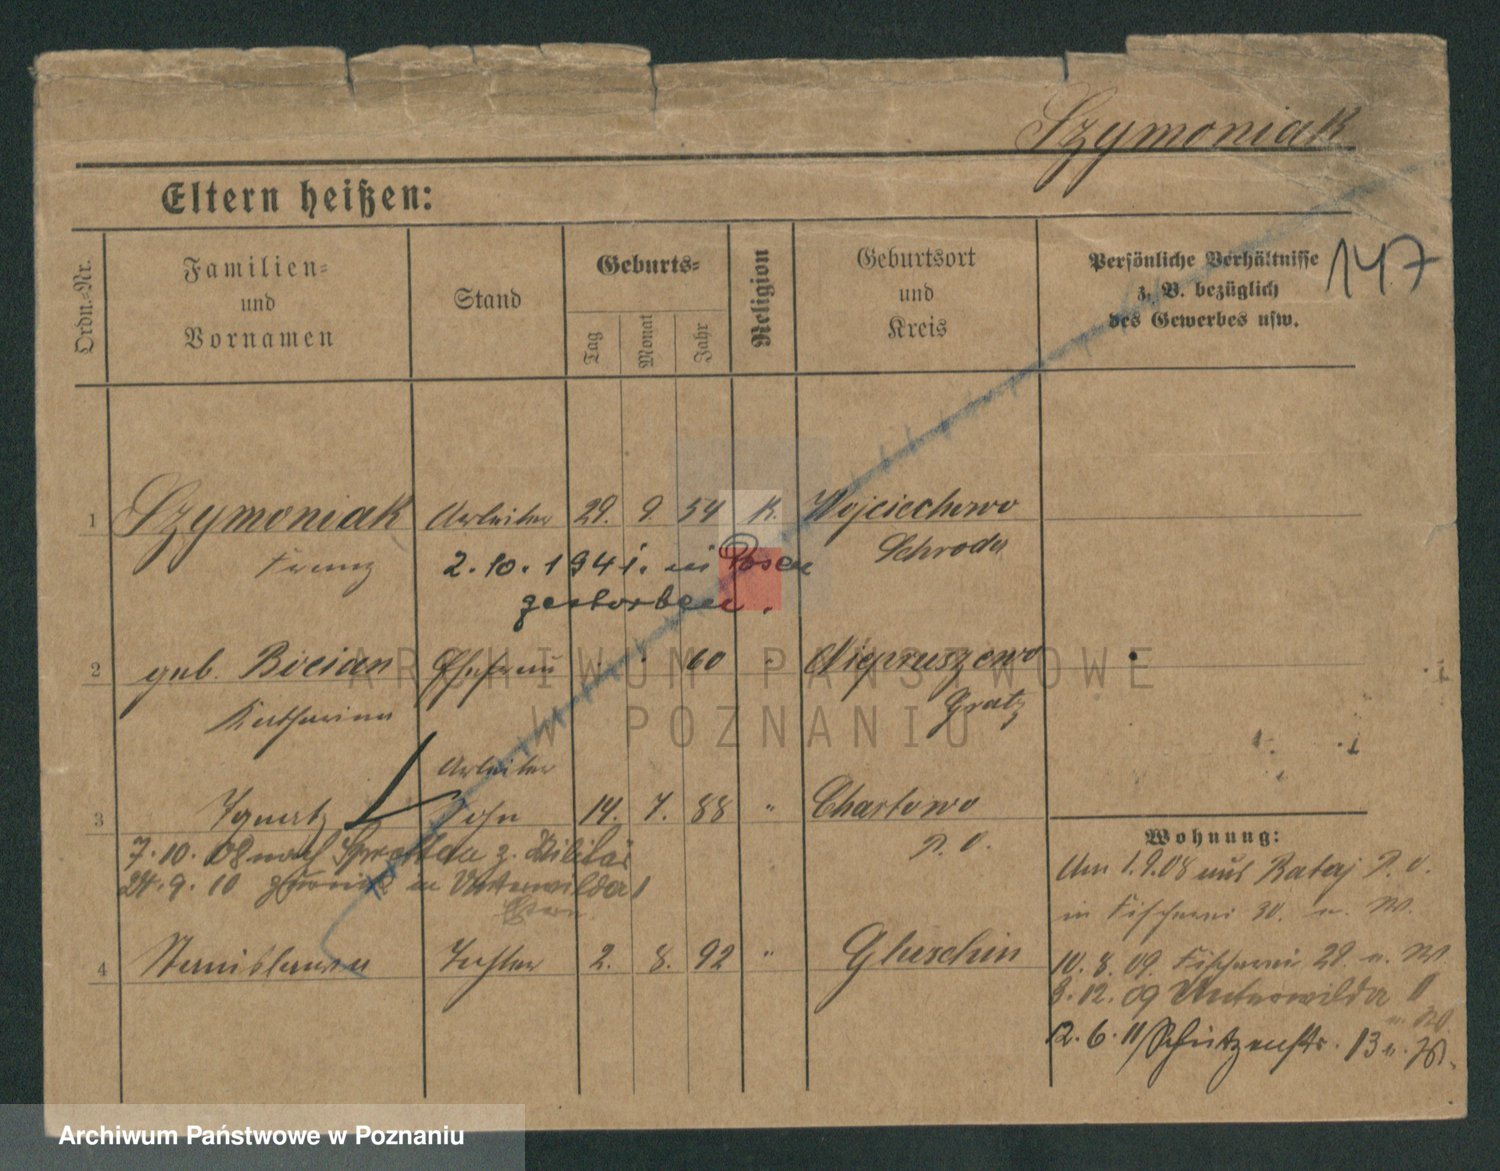 Szymoniak
Eltern heißen:
147
Ordn.=Nr.
Familien=
und
Vornamen
Stand
Geburts=
Tag
Monat
Jahr
Religion
Geburtsort
und
Kreis
Persönliche Verhältnisse
z. B. bezüglich
des Gewerbes usw.
1 Szymoniak Arbeiter 29. 9. 54 K. Wojciechowo
Franz Schroda
2.10.1941. in Posen
gestorben.
2 geb. Bocian Ehefrau 60 " Niepruszewo
Katharina Gratz
Arbeiter
3 Ignatz Sohn 14. 7. 88 " Chartowo
P. O.
7.10.08 nach Sprottau z. Militär
24.9.10 zurück in Unterwilda 1
Eltern
4 Stanislawa Tochter 2. 8. 92 " Gluschin
Wohnung:
Am 1.9.08 aus Rataj P. O.
in Fischerei 30. u. W.
10.8.09. Fischerei 29. u. W
3.12.09 Unterwilda 11
u. W
12.6.11 Schützenstr. 13 u. W.
ARCHIWUM PAŃSTWOWE
W POZNANIU
Archiwum Państwowe w Poznaniu